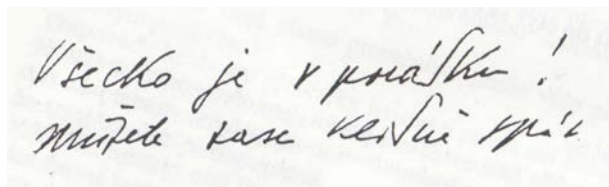 Všecko je v pořádku!
můžete zase klidně spát